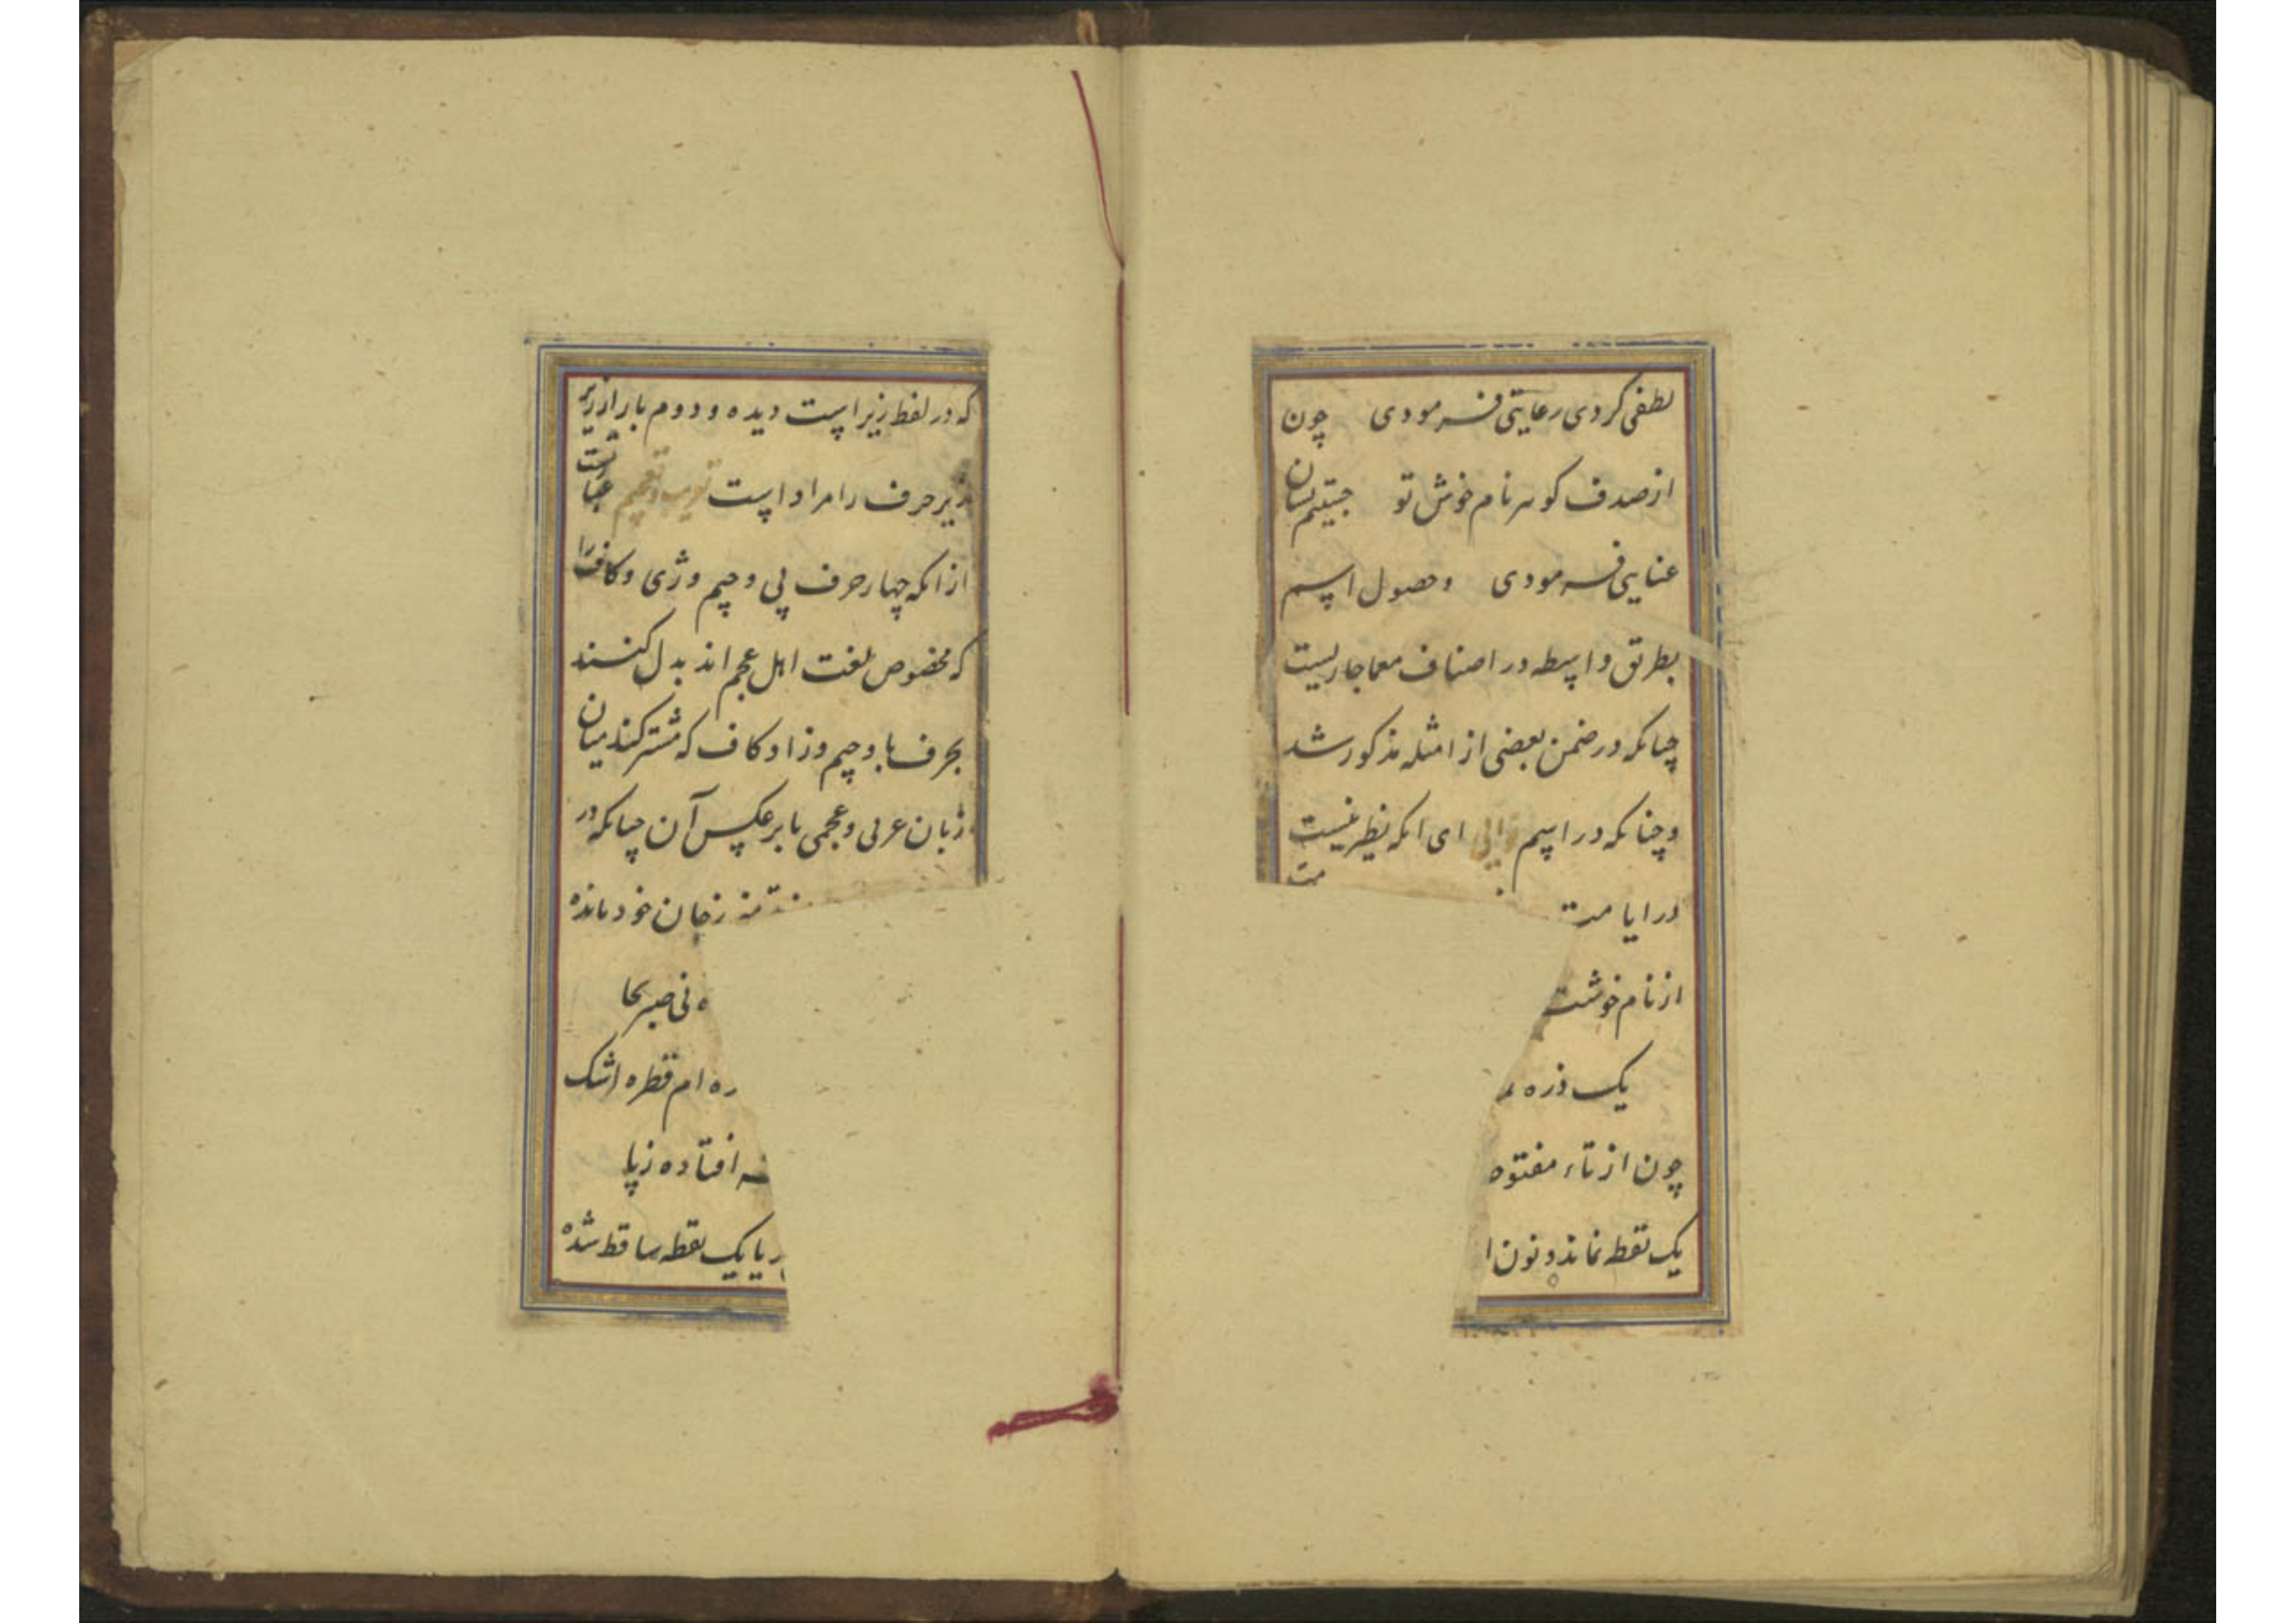 لطفی کردی رعایتی فرمودی چون
از صدف کوهر نام خوش تو جستیم نشان
عنایتی فرمودی وحصول اسم
بطریق واسطه در اصناف معما جاریست
چنانکه در ضمن بعضی از امثله مذکور شد
وچنانکه در اسم ای انکه نظیر نیست
در ایا
از نام خوشت
یک ذره
چون از تاء مفتوح
یک نقطه نماند و نون ا
که در لفظ زیر است دیده و دوم بار از زیر
زیر حرف را مراد است تعریب وتعجیم عبارتست
از انکه چهار حرف پی و چیم و ژی و کاف را
که مخصوص لغت اهل عجم اند بدل کنند
بحرف با و جیم و زا و کاف که مشترکند میان
زبان عربی و عجمی یا بر عکس آن چنانکه در
زجان خود مانده
ه نی صبر بجا
ره ام قطره اشک
افتاده ز پا
یا یک نقطه ساقط شده